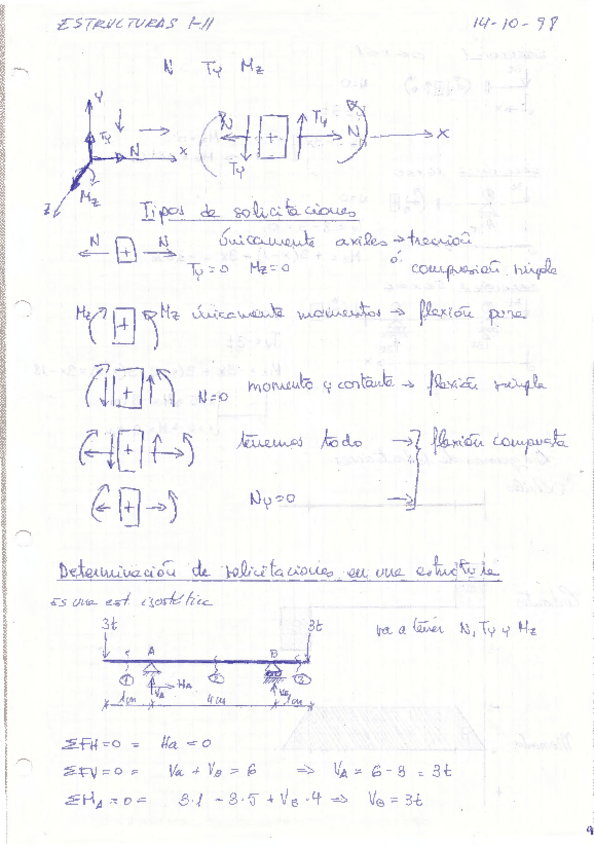 ESTRUCTURAS I-II 14-10-98
N Ty Mz
Y
Ty
N
X
Mz
Z
N Ty + N X
Ty
Tipos de solicitaciones
N + N únicamente axiles → tracción
Ty=0 Mz=0 ó compresión simple
Mz + Mz únicamente momentos → flexión pura
+ N=0 momento y cortante → flexión simple
+ tenemos todo → flexión compuesta
+ Ny=0 →
Determinación de solicitaciones en una estructura
Es una est isostática
3t 3t va a tener N, Ty y Mz
A B
1 VA HA 2 VB 3
1m 4m 1m
ΣFH=0 = Ha = 0
ΣFV=0 = Va + VB = 6 ⇒ VA = 6-3 = 3t
ΣMA=0= 3·1 - 3·5 + VB·4 ⇒ VB = 3t